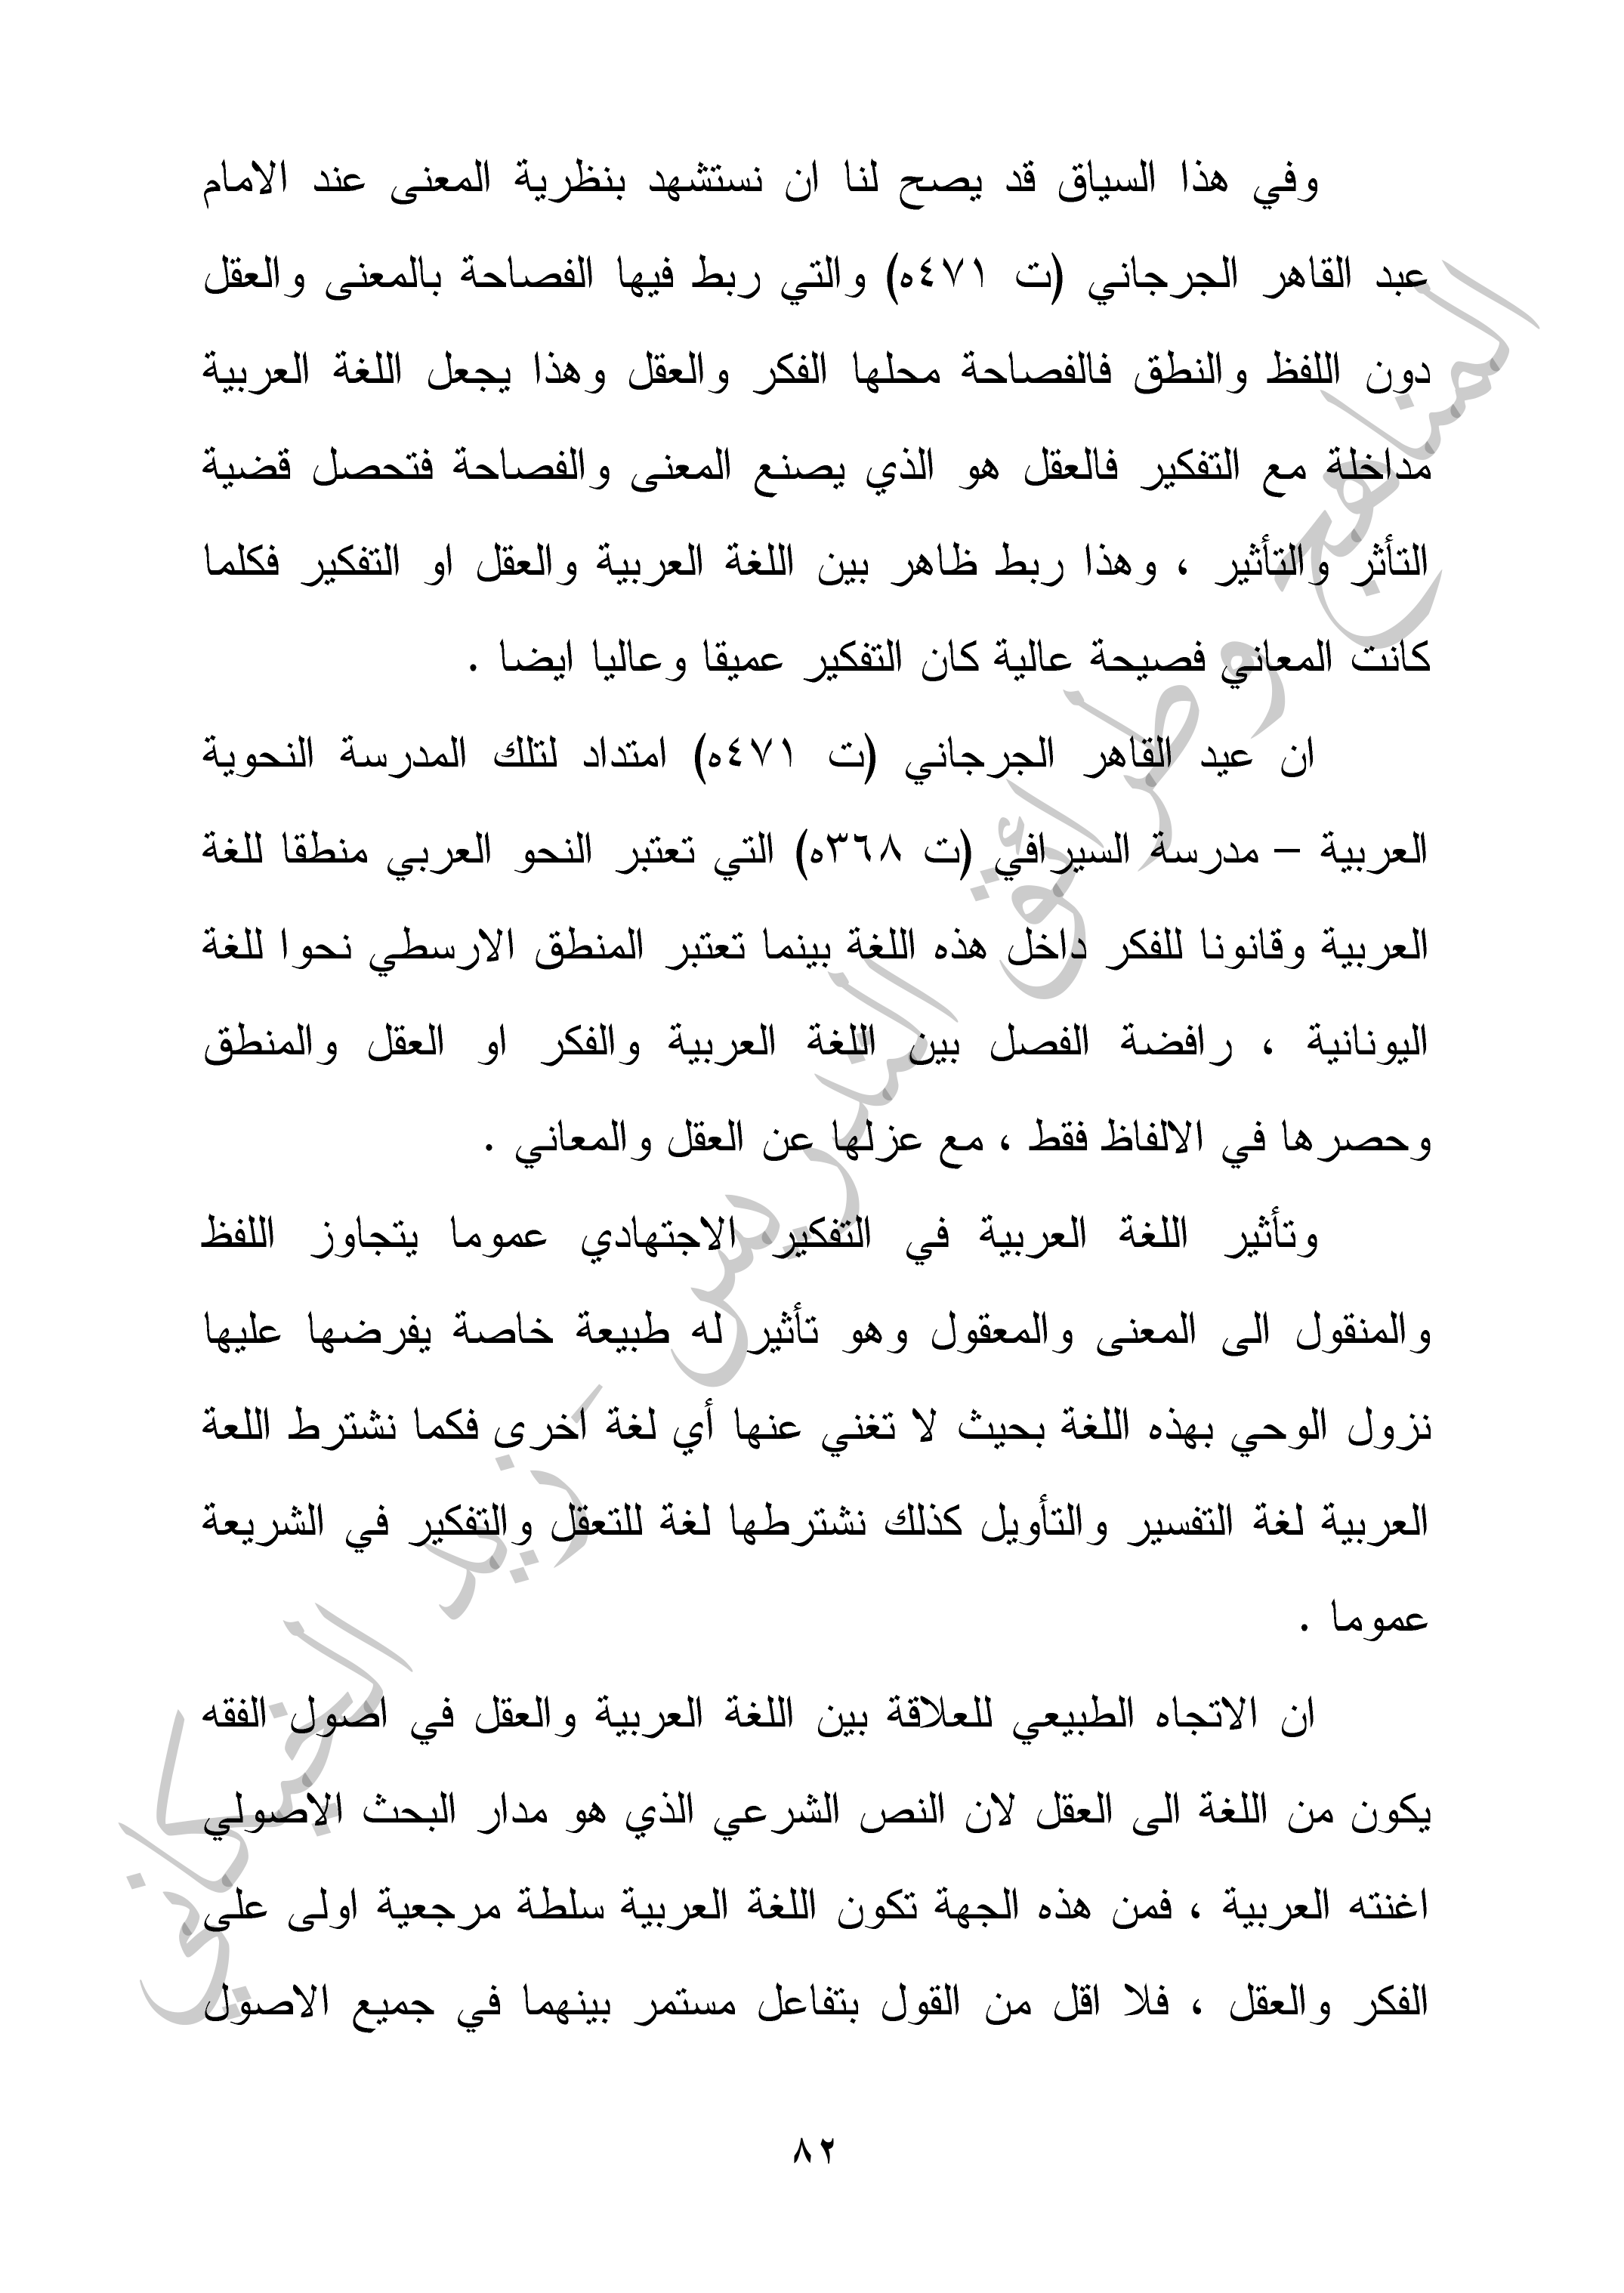 وفي هذا السياق قد يصح لنا ان نستشهد بنظرية المعنى عند الامام
عبد القاهر الجرجاني (ت ٤٧١ه) والتي ربط فيها الفصاحة بالمعنى والعقل
دون اللفظ والنطق فالفصاحة محلها الفكر والعقل وهذا يجعل اللغة العربية
مداخلة مع التفكير فالعقل هو الذي يصنع المعنى والفصاحة فتحصل قضية
التأثر والتأثير ، وهذا ربط ظاهر بين اللغة العربية والعقل او التفكير فكلما
كانت المعاني فصيحة عالية كان التفكير عميقا وعاليا ايضا .
ان عيد القاهر الجرجاني (ت ٤٧١ه) امتداد لتلك المدرسة النحوية
العربية – مدرسة السيرافي (ت ٣٦٨ه) التي تعتبر النحو العربي منطقا للغة
العربية وقانونا للفكر داخل هذه اللغة بينما تعتبر المنطق الارسطي نحوا للغة
اليونانية ، رافضة الفصل بين اللغة العربية والفكر او العقل والمنطق
وحصرها في الالفاظ فقط ، مع عزلها عن العقل والمعاني .
وتأثير اللغة العربية في التفكير الاجتهادي عموما يتجاوز اللفظ
والمنقول الى المعنى والمعقول وهو تأثير له طبيعة خاصة يفرضها عليها
نزول الوحي بهذه اللغة بحيث لا تغني عنها أي لغة اخرى فكما نشترط اللعة
العربية لغة التفسير والتأويل كذلك نشترطها لغة للتعقل والتفكير في الشريعة
عموما .
ان الاتجاه الطبيعي للعلاقة بين اللغة العربية والعقل في اصول الفقه
يكون من اللغة الى العقل لان النص الشرعي الذي هو مدار البحث الاصولي
اغنته العربية ، فمن هذه الجهة تكون اللغة العربية سلطة مرجعية اولى على
الفكر والعقل ، فلا اقل من القول بتفاعل مستمر بينهما في جميع الاصول
٨٢
المناهج وطرائق التدريس _ زيد الخيكاني